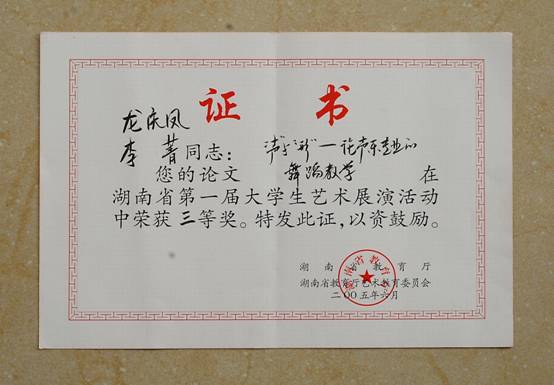 证书
龙庆凤
李菁同志：
您的论文 舞蹈教学 在
湖南省第一届大学生艺术展演活动
中荣获三等奖。特发此证，以资鼓励。
湖南省教育厅
湖南省教育厅艺术教育委员会
二〇〇五年六月